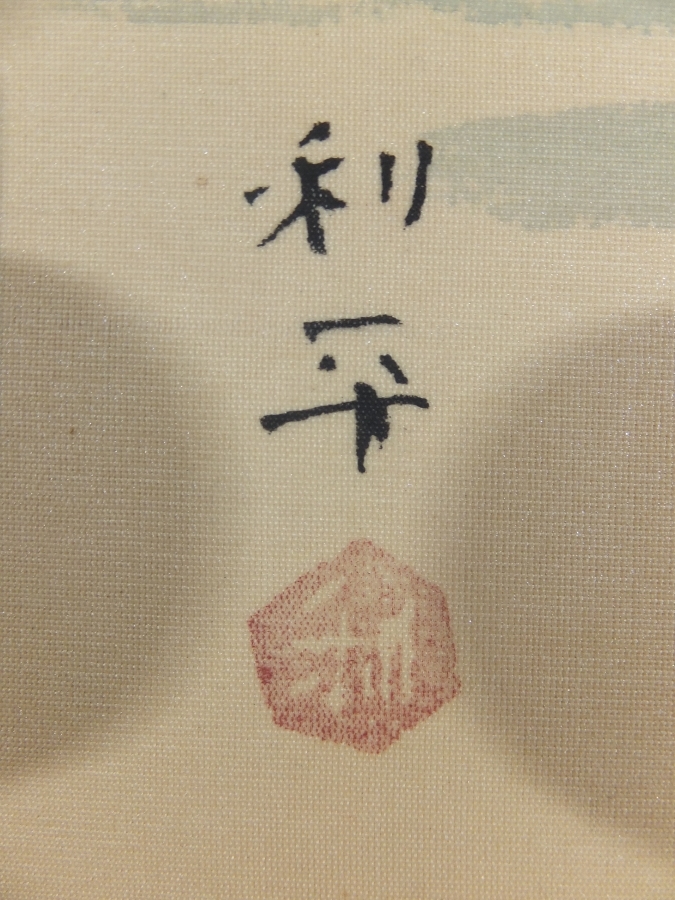 利平
利